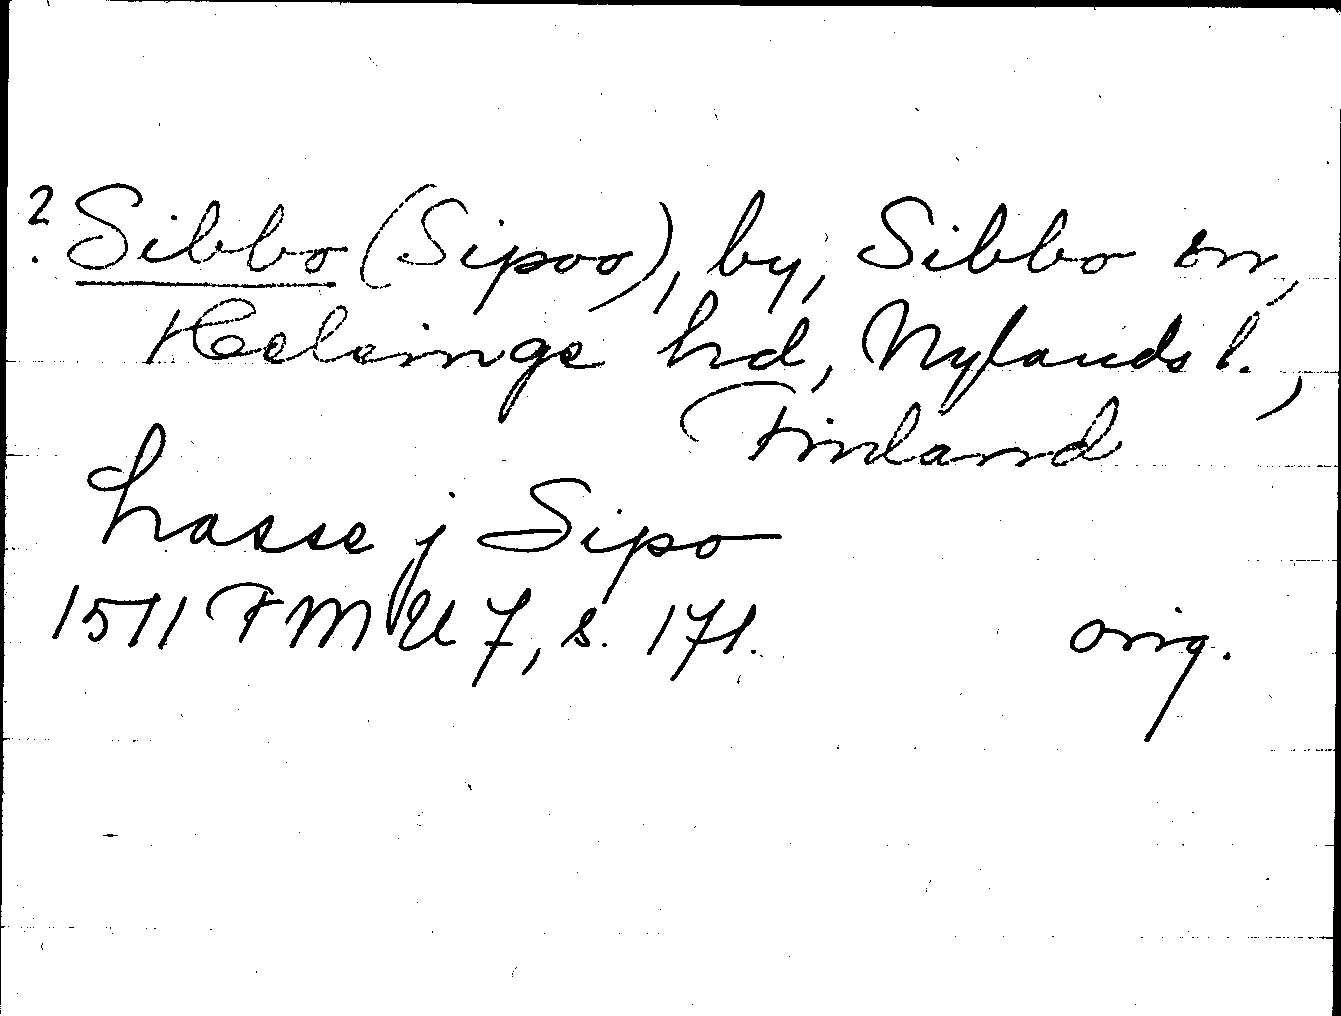 ? Sibbo (Sipoo), by, Sibbo sn,
Helsinge hd, Nylands l.,
Finland
Lasse j Sipo
1511 FMU 7, s. 171.
orig.